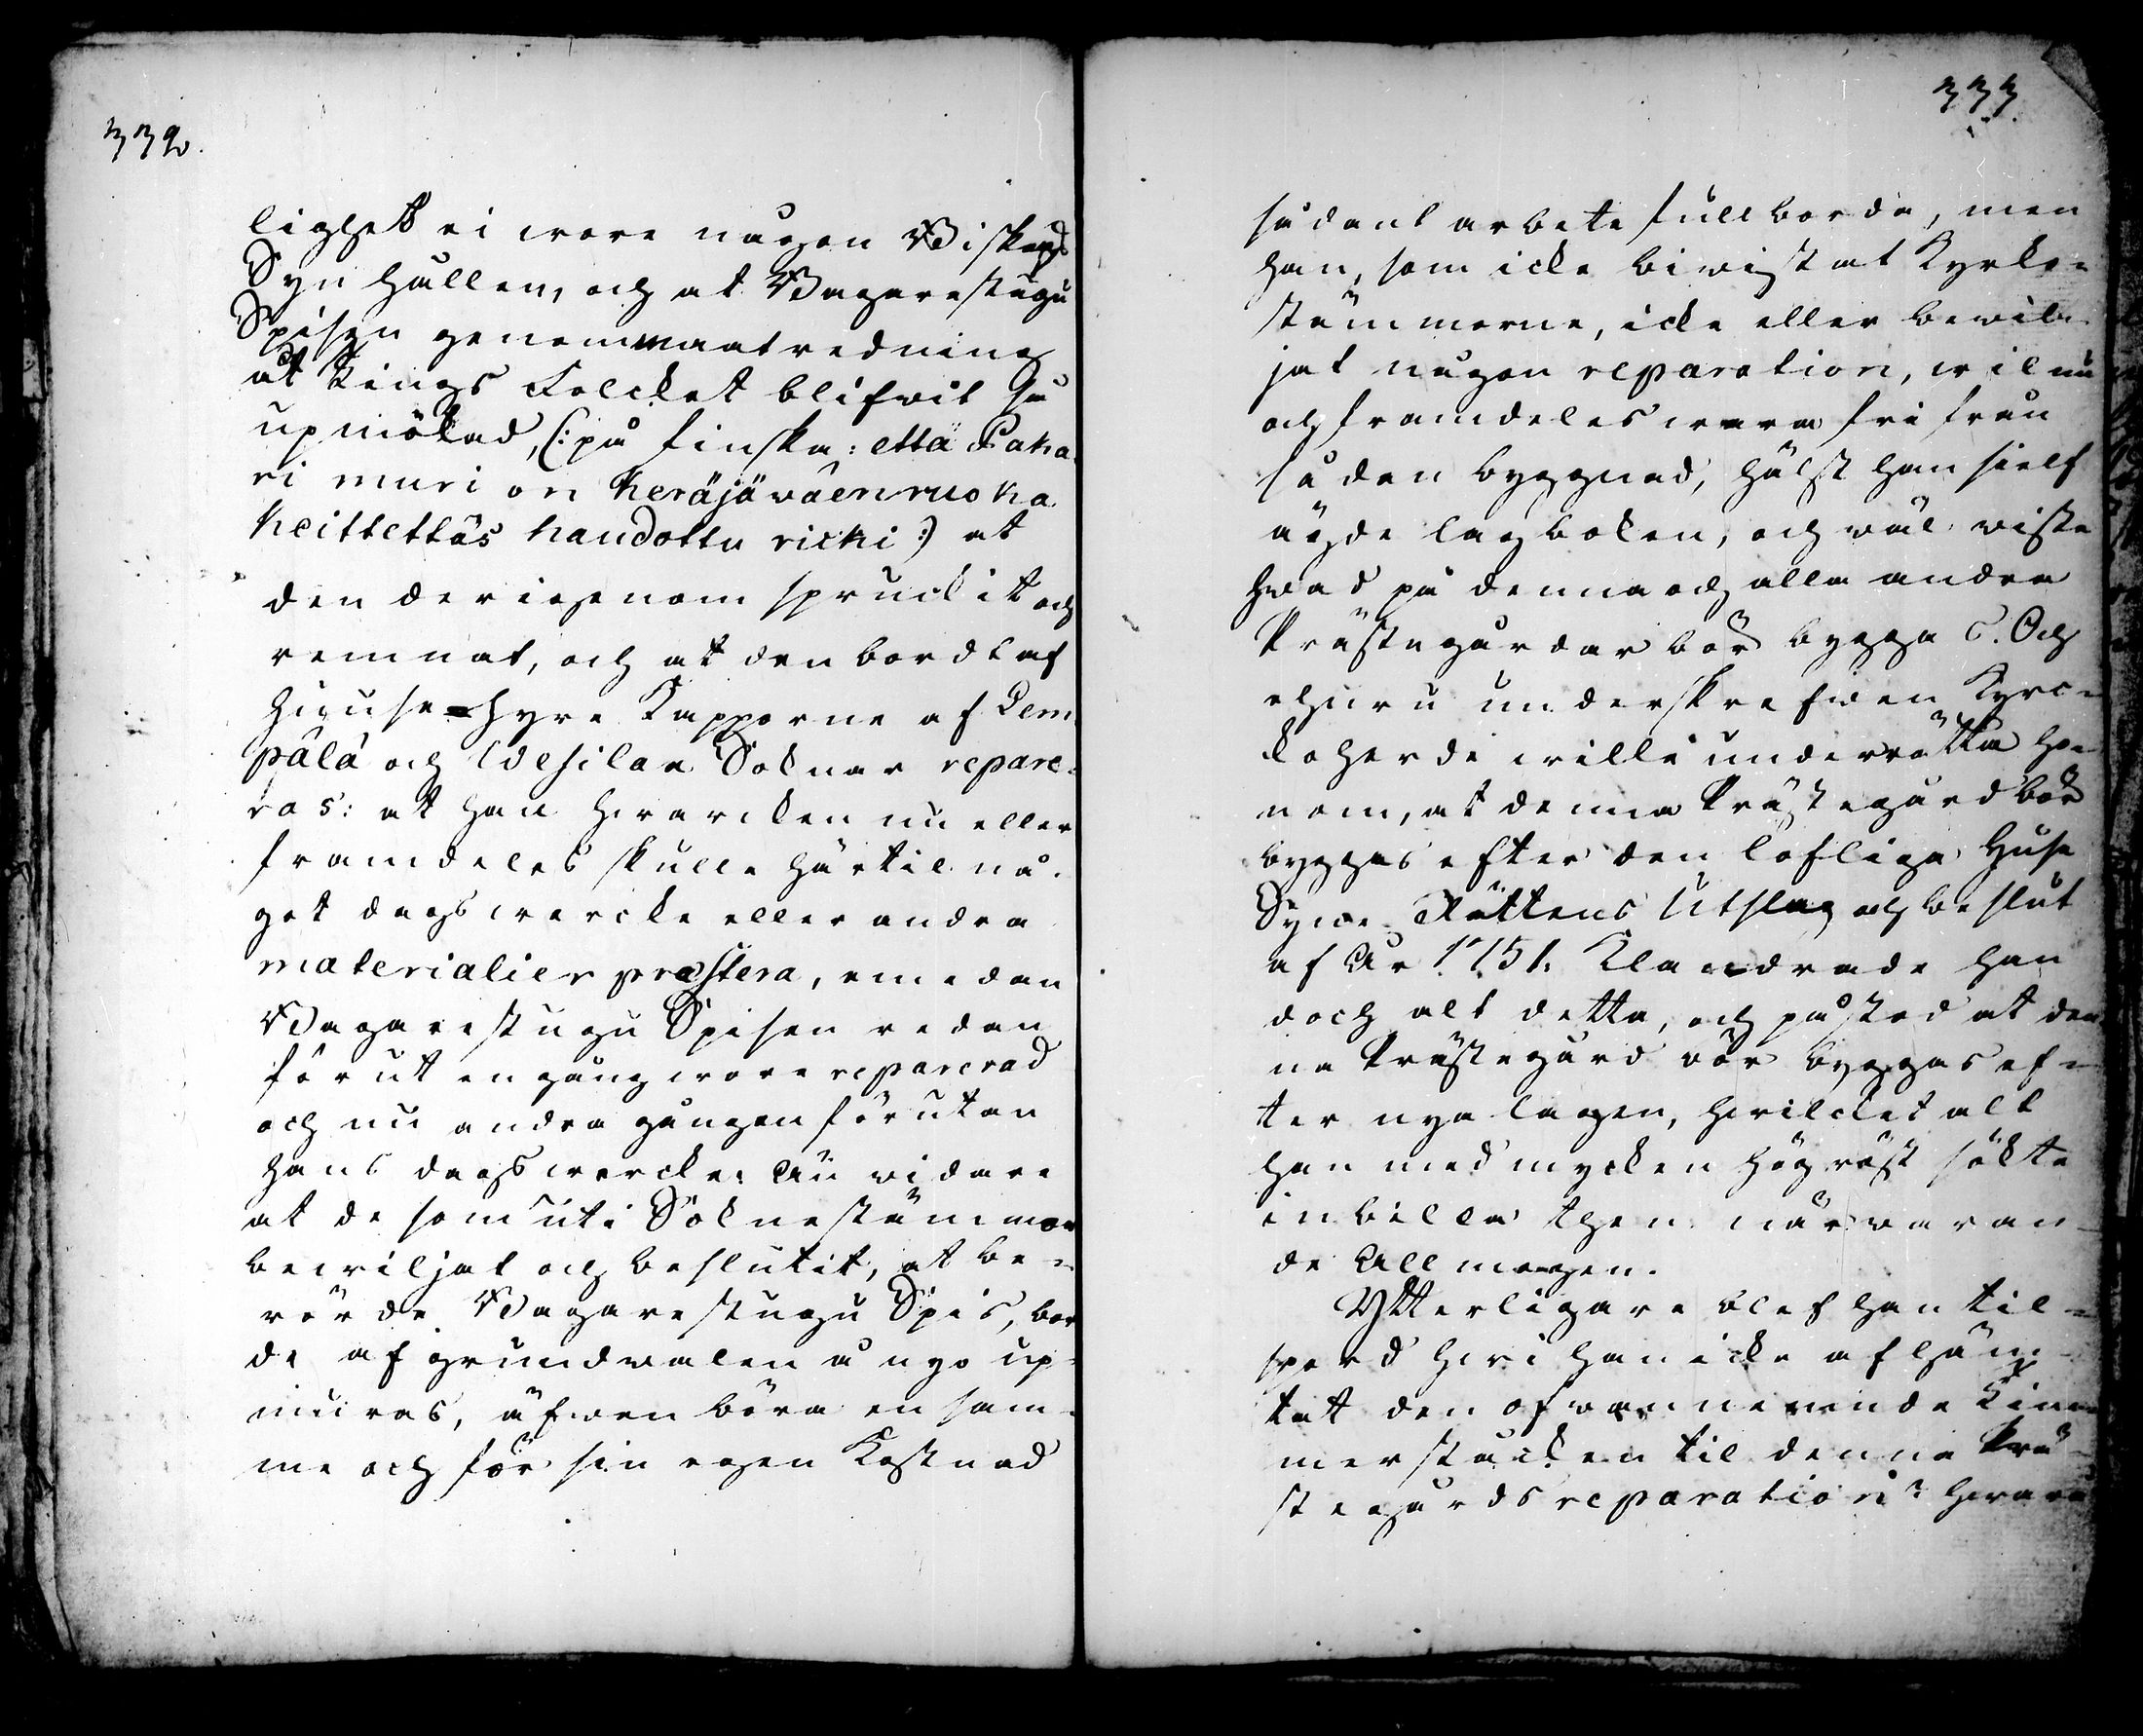 332.
ligheit ei wore någon Biskops
Syn hållen, och at Bagarestugu
Spisen genom maatredning
åt Tings Folcket blifwit så
upmötad, (: på finska: että Paka-
ri muri on keräjäwäen ruoka
keittettäs haudottu ricki:) at
den derigenom spruckit och
remnat, och at den bordt af
Higuse-hyre Kapporne af Lem-
pälä och Wesilax Soknar repare-
ras: at han hwarcken nu eller
framdeles skulle härtil nå-
got dagswercke eller andra
materialier præstera, emedan
Bagarestugu Spisen redan
förut en gång wore reparerad
och nu andra gången förutan
hans dagswercke: Än widare
at de som uti Soknestämmor
bewiljat och beslutit, at be-
rörde Bagarestugu Spis, bor
de af grundwalen å nyo up-
muras, äfwen böra en sam-
me och för sin egen Kostnad
333.
sådant arbete fullborda, men
han, som icke biwistat Kyrko-
stämmorne, icke eller bewil-
jat någon reparation, wil nu
och framdeles wara fri från
sådan byggnad, hälst han sielf
ägde lagboken, och wäl wiste
hwad på denna och alla andra
Prästegårdar bör byggas. Och
ehuru underskrefwen Kyrc-
koherde wille underrätta ho-
nom, at denna Prästegård bör
byggas efter den lofliga Huse
Syns Rättens Utslag och beslut
af År 1751. Klandrade han
doch alt detta, och påstod at den-
na Prästegård bör byggas ef-
ter nya lagen, hwilcket alt
han med mycken högröst sökte
inbilla then närwaran-
de Allmogen.
Ytterligare blef han til-
spord hwi han icke afhäm-
tat den ofwannemnde Tim-
merstocken til denna Prä-
stegårds reparation? hwara